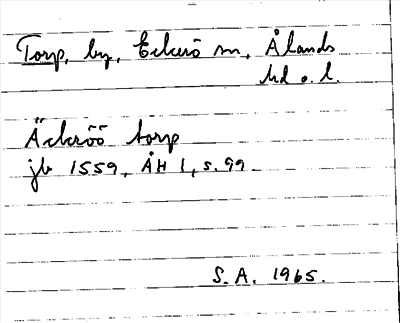 Torp, by, Eckerö sn, Ålands
hd o. l.
Äckröö torp
jb 1559, ÅH 1, s. 99
S. A. 1965.